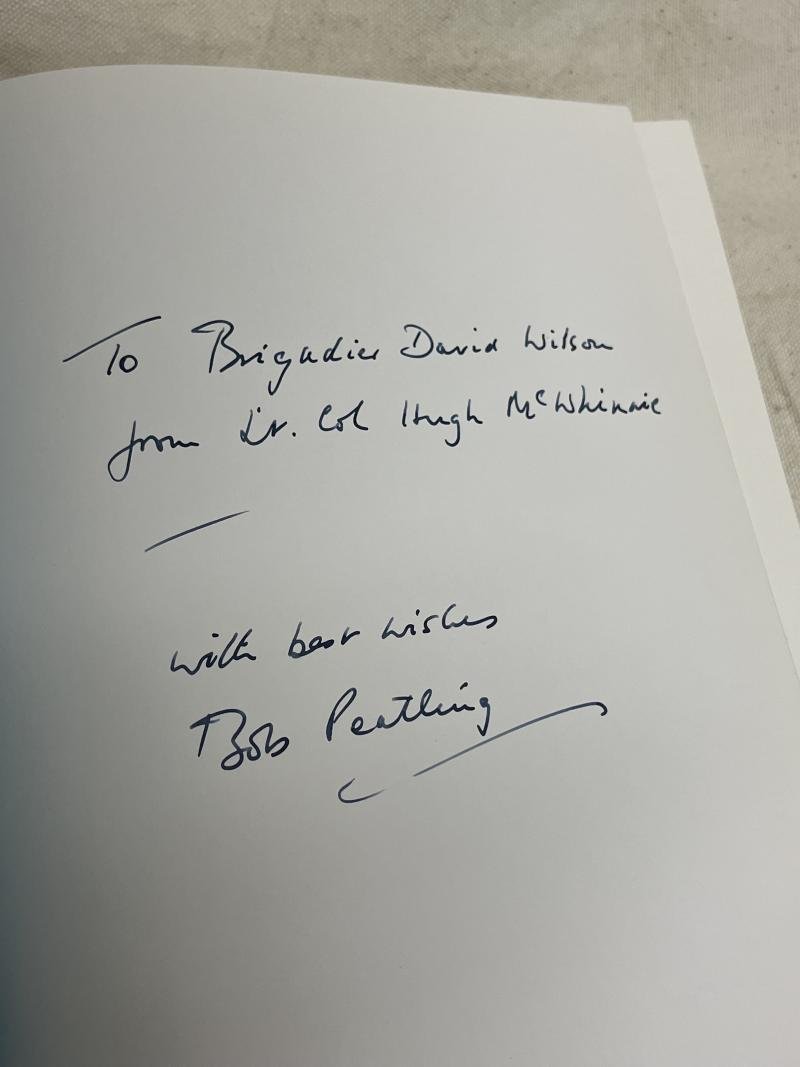 To Brigadier David Wilson
from Lt. Col Hugh McWhinnie
with best wishes
Bob Peatling